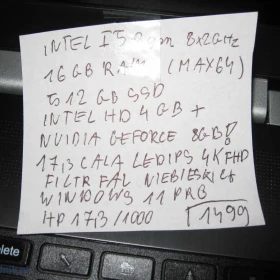 INTEL I5 8gen 8x2GHz
16 GB RAM (MAX64)
512 GB SSD
INTEL HD 4 GB +
NVIDIA GEFORCE 8GB!
17,3 CALA LEDIPS 4K FHD
FILTR FAL NIEBIESKICH
WINDOWS 11 PRO
HP 17,3/1000 1499
elete